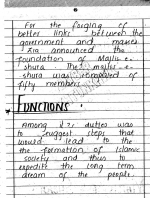 For the forging of
better links between the
government and masses
Zia announced the
foundation of Majlis-e-
shura. The majlis-e
shura was composed of
fifty members.
FUNCTIONS:
Among its duties was
to suggest steps that
would lead to the
the formation of Islamic
society and thus to
expedite the long term
dream of the people.